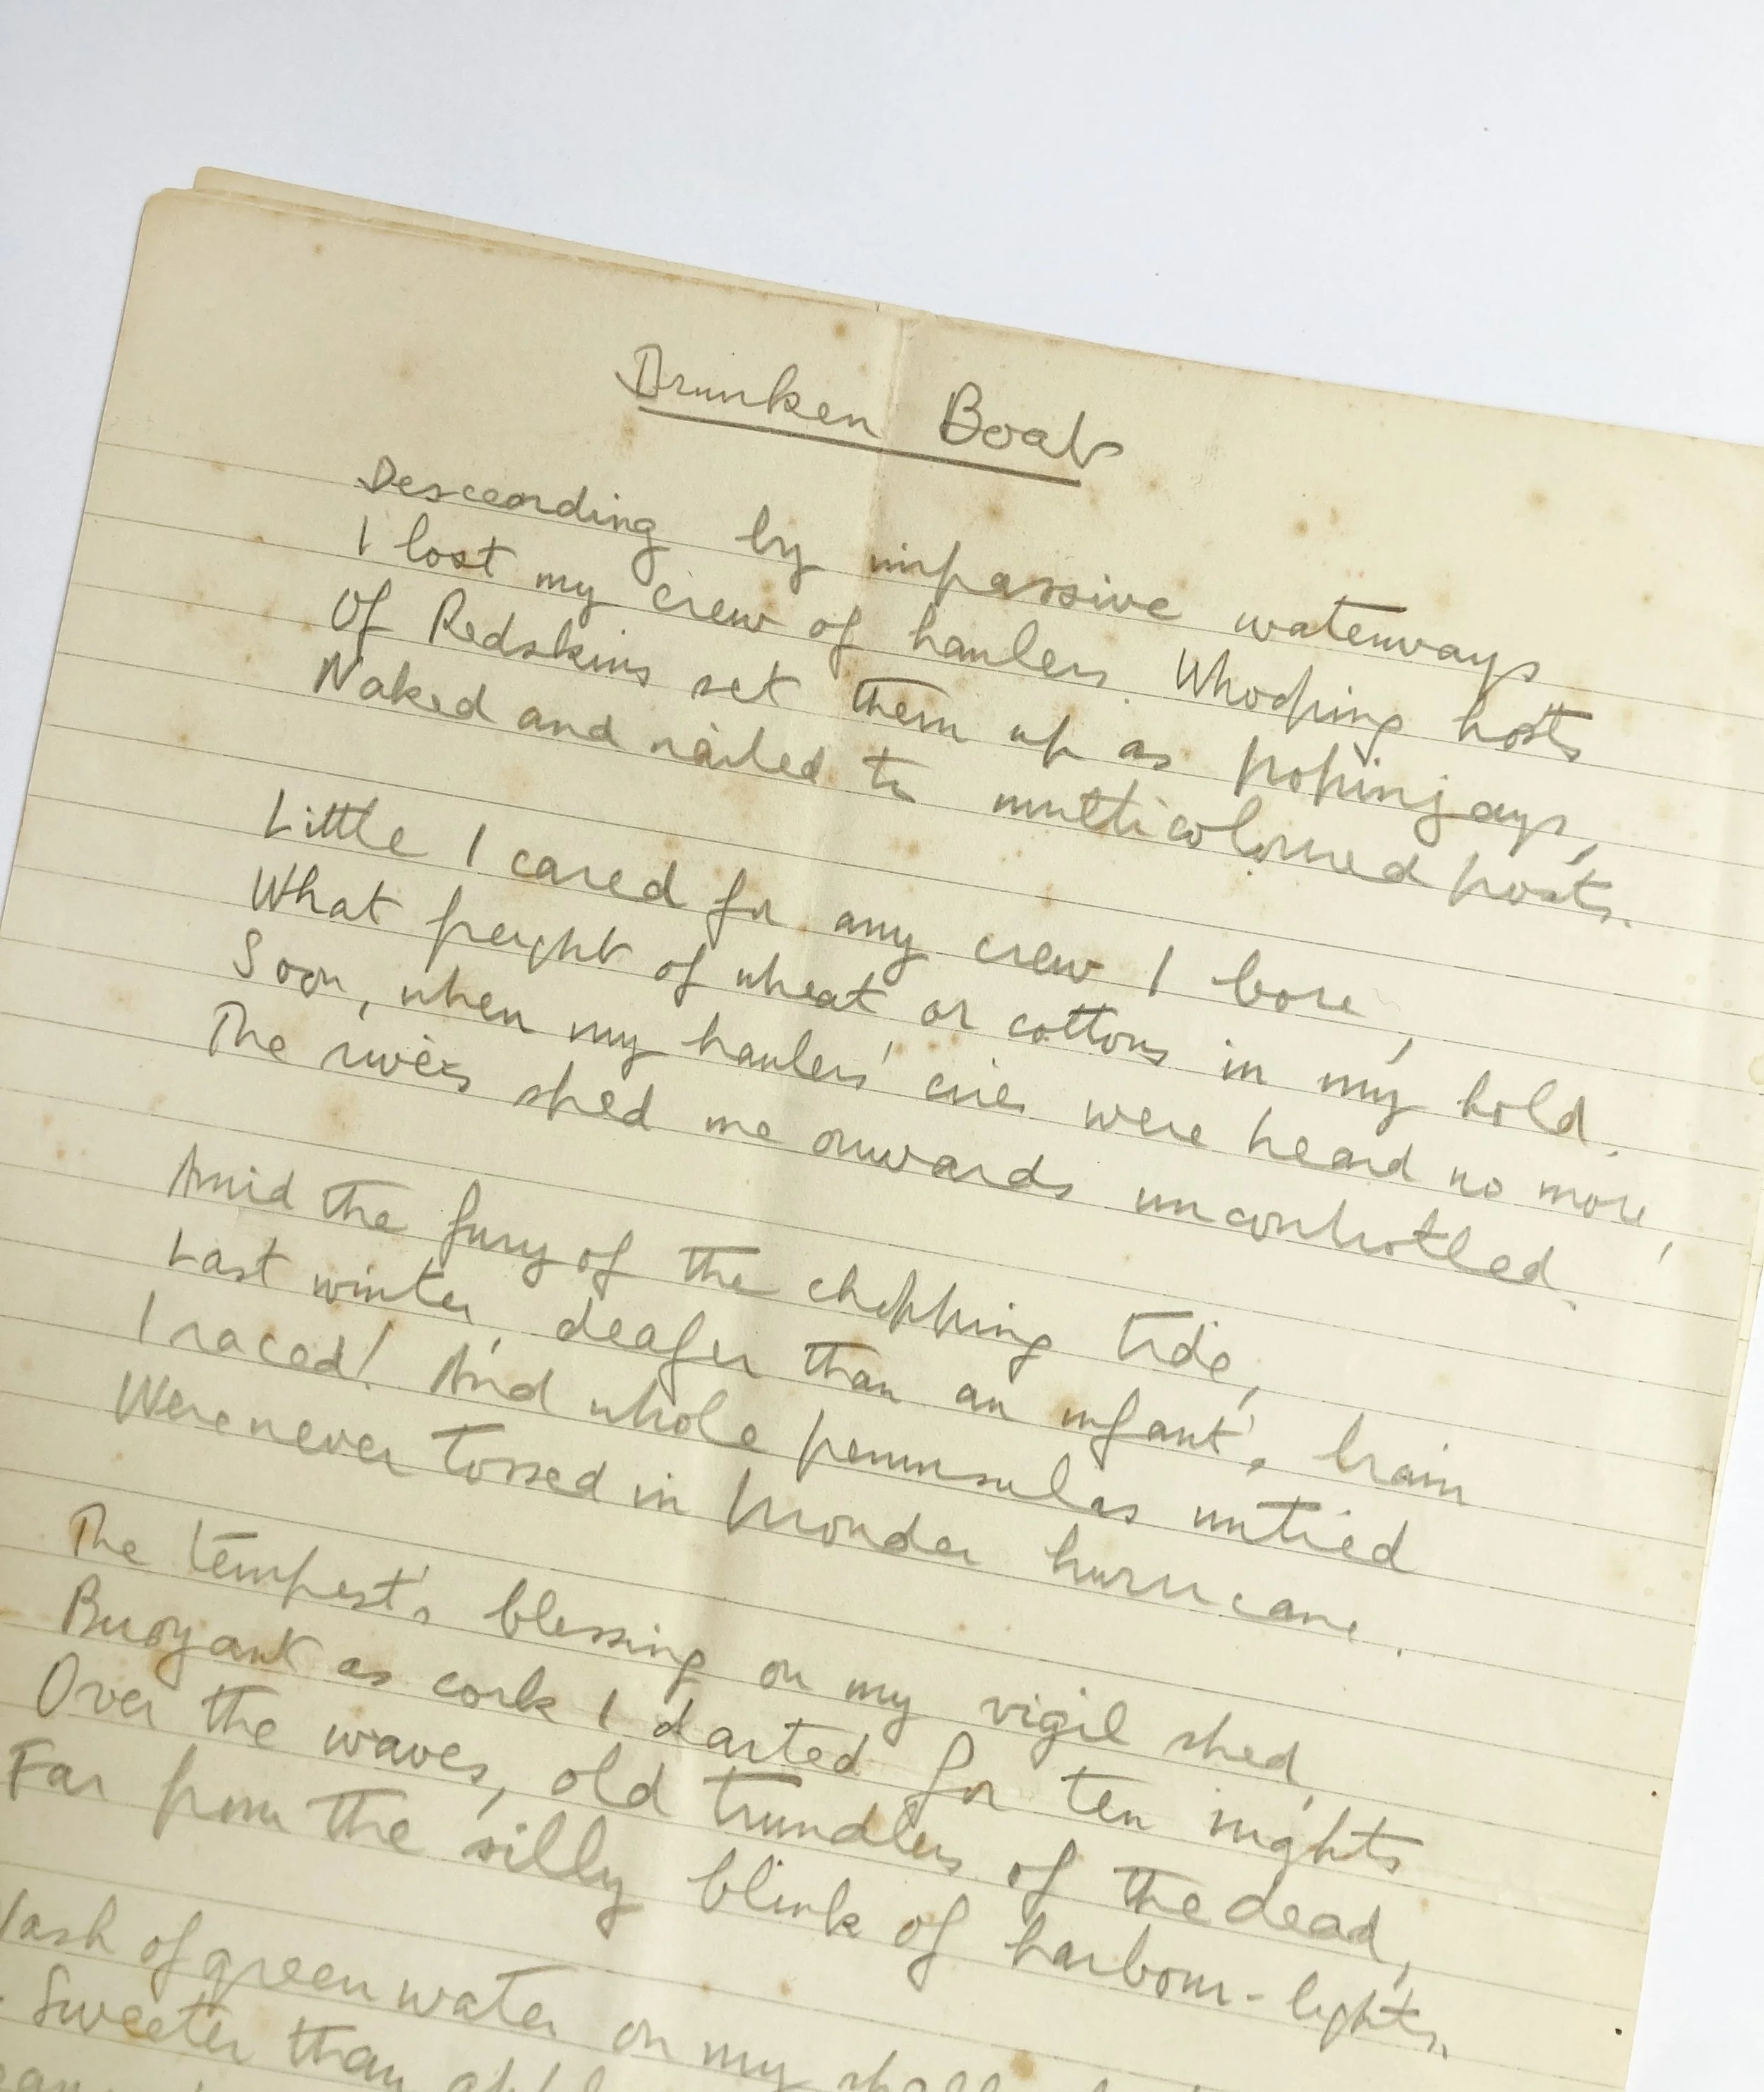 Drunken Boat
Descending by impassive waterways
I lost my crew of haulers. Whooping hosts
Of Redskins set them up as popinjays,
Naked and nailed to multicoloured posts.
Little I cared for any crew I bore,
What freight of wheat or cottons in my hold.
Soon, when my haulers' cries were heard no more,
The rivers shed me onwards uncontrolled.
Amid the fury of the chopping tide,
Last winter, deafer than an infant's brain
I raced! And whole peninsulas untied
Were never tossed in prouder hurricane.
The tempest's blessing on my vigil shed,
Buoyant as cork I darted for ten nights
Over the waves, old trundlers of the dead,
Far from the silly blink of harbour-lights.
of green water on my
Sweeter than